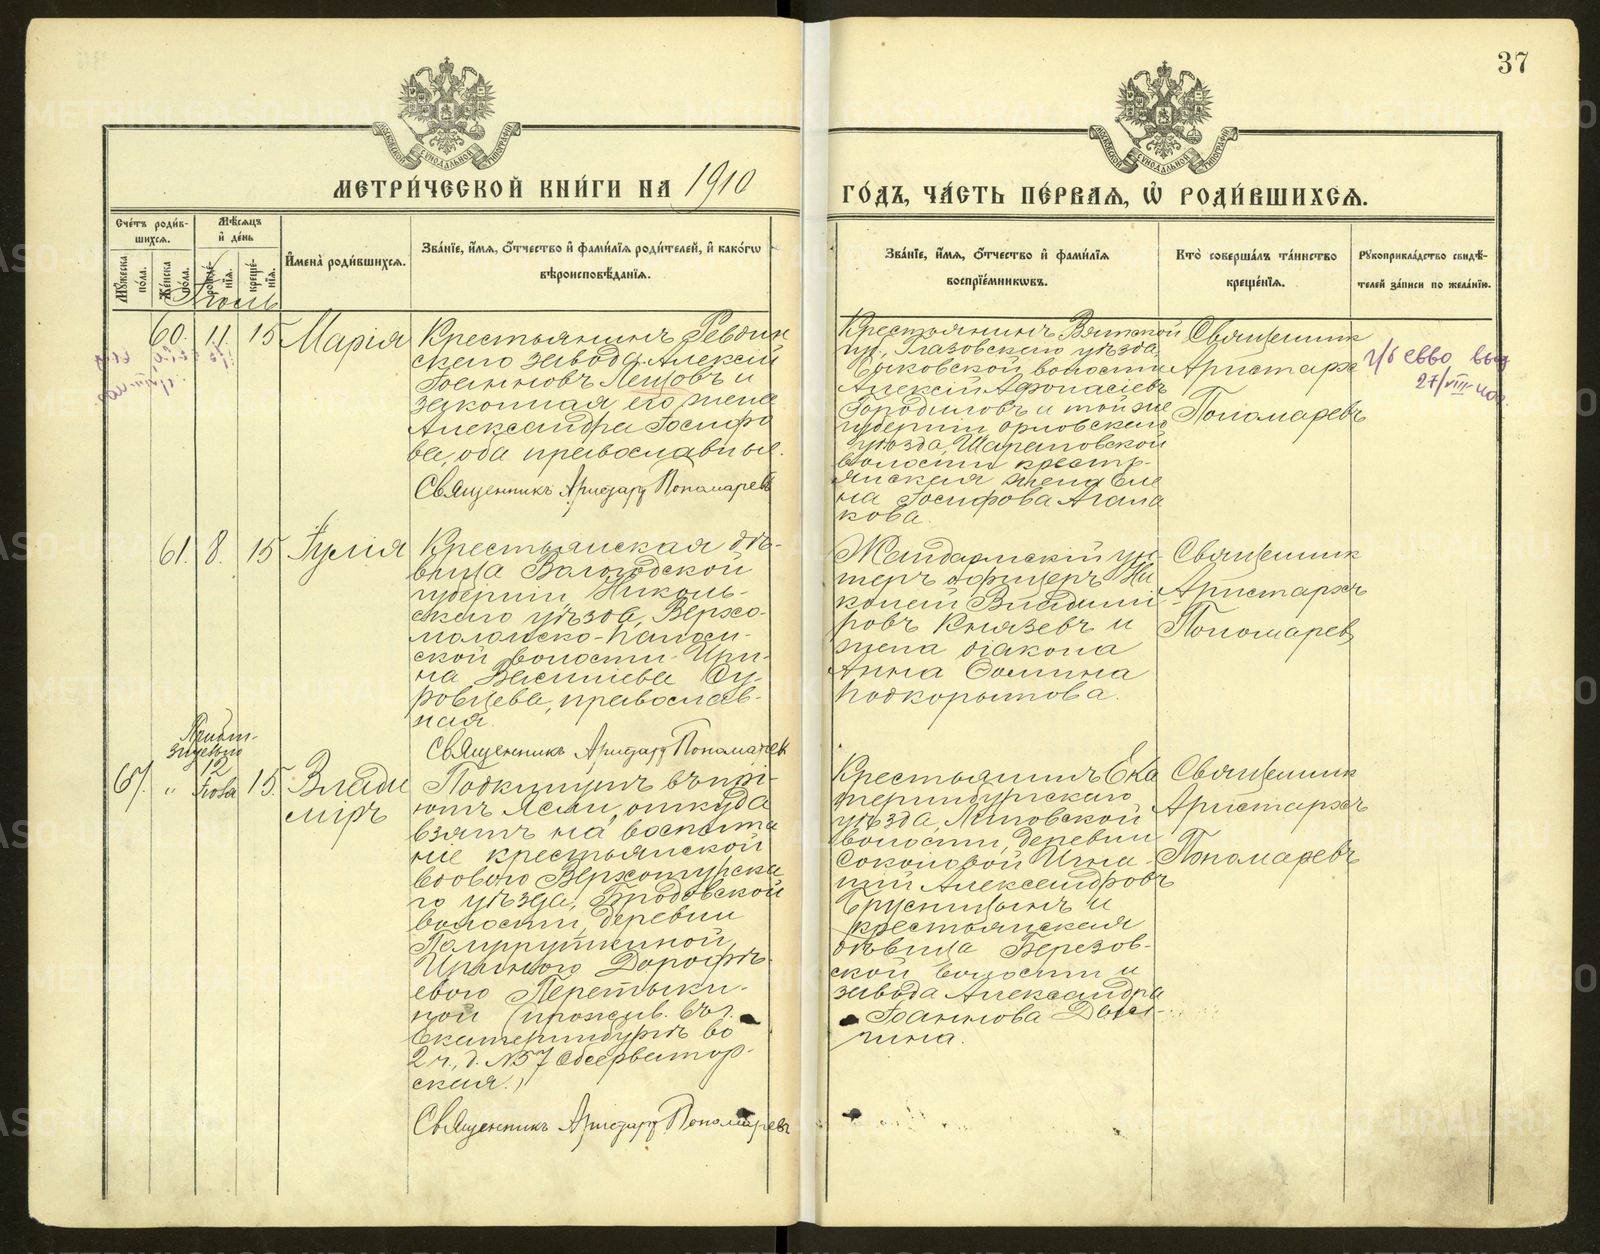 37
МЕТРИ́ЧЕСКОЙ КНИ́ГИ НА 1910
ГО́ДЪ, ЧА́СТЬ ПЕ́РВАЯ, Ѡ҆ РОДИ́ВШИХСЯ.
Сче́тъ роди́в-
шихся.
Мѣ́сяцъ
и҆ де́нь
Мꙋ́жеска
по́ла.
Же́нска
по́ла.
рожде́-
нїя.
креще́-
нїя.
И҆мена̀ роди́вшихся.
Зва́нїе, и҆́мя, ѻ҆́тчество и҆ фами́лїя роди́телей, и҆ како́гѡ
вѣроисповѣ́данїя.
Зва́нїе, и҆́мя, ѻ҆́тчество и҆ фами́лїя
воспрїе́мникѡвъ.
Кто̀ соверша́лъ та́инство
креще́нїя.
Рꙋкоприкла́дство свидѣ́-
телей за́писи по жела́нїю.
Іюль
60. 11. 15 Марія
Крестьянинъ Ревдин
скаго завода Алексій
Іоанновъ Лещовъ и
законная его жена
Александра Іосифо
ва, оба православные.
Священникъ Аристархъ Пономаревъ
Крестьянинъ Вятской
губ., Глазовскаго уѣзда,
волости
Алексій Афонасіевъ
Городиловъ и той же
губерніи Орловскаго
уѣзда, Шараповской
волости кресть-
янская жена Еле
на Іосифова Агала
кова.
Священник
Аристархъ
Пономаревъ
27/VIII
61. 8. 15 Іулія
Крестьянская дѣ-
вица Вологодской
губерніи, Николь-
скаго уѣзда, Верхо-
ской волости Ири-
на Васильева Су-
ровцева, православ-
ная.
Священникъ Аристархъ Пономарев
Жандармскій ун-
теръ офицеръ Ни
колай Владимі
ровъ Князевъ и
жена діакона
Анна Фомина
Подкорытова.
Священник
Аристархъ
Пономарев
Прибли-
зительно
12
Іюля
67. " 15. Влади
міръ
Подкинутъ въ прі-
ютъ Ясли, откуда
взятъ на воспита
ніе крестьянской
вдовою Верхотурска
го уѣзда, Бродовской
волости, деревни
Ириною Дороѳѣ-
евою Перетыки-
ной (прожив. въ г.
Екатеринбургѣ во
2 ч., д. №57 Обсерватор-
ская.)
Священникъ Аристархъ Пономаревъ
Крестьянинъ Ека
теринбургскаго
уѣзда, Липовской
волости, деревни
Соколовой Игна-
тій Александровъ
Брусницынъ и
крестьянская
дѣвица Березов-
ской волости и
завода Александра
Іоаннова
гина.
Священник
Аристархъ
Пономаревъ